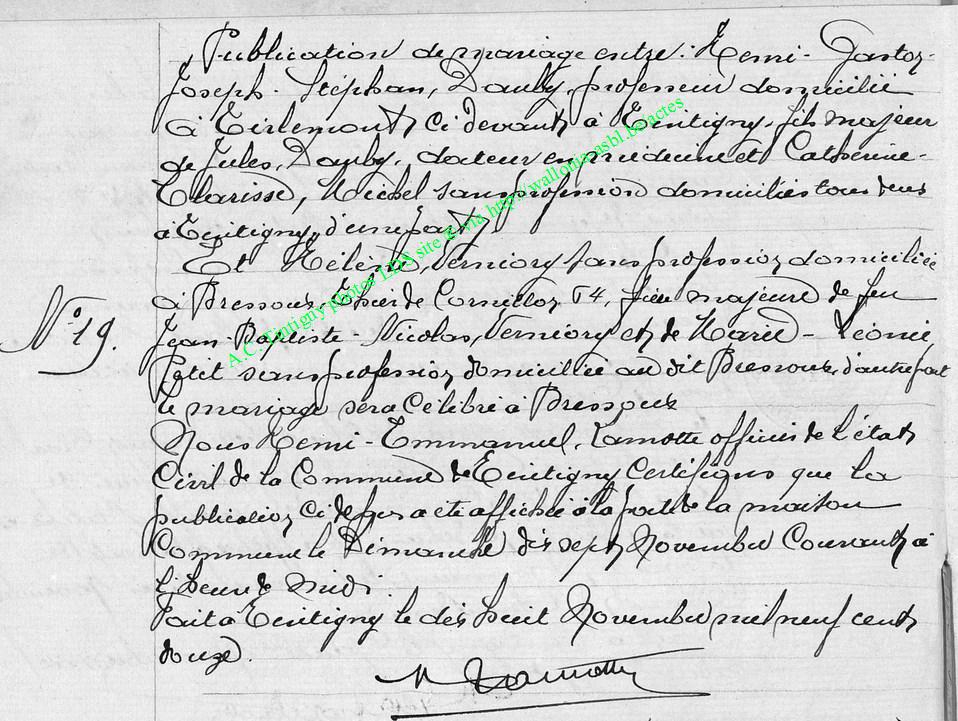 Publication de mariage entre: Remi- Gaston-
Joseph- Stéphan, Dauby, professeur domicilié
à Tirlemont ci devant à Tintigny, fils majeur
de Jules, Dauby, docteur en médecine et Catherine-
Clarisse, Michel sans profession domiciliés tous deux
à Tintigny, d'une part,
Et Hélène, Verniory sans profession domiciliée
à Bressoux, de Cornillon 64, fille majeure de feu
N° 19.
Jean-Baptiste-Nicolas, Verniory et de Marie-Léonie
Petit sans profession domiciliée au dit Bressoux, d'autre part
le mariage sera célébré à Bressoux
Nous Remi-Emmanuel, Lamotte officier de l'état
Civil de la Commune de Tintigny Certifions que la
publication ci dessus a été affichée à la porte de la maison
Commune le Dimanche dix sept Novembre Courant à
l'heure de Midi.
Fait à Tintigny le dix huit Novembre mil neuf cent
douze.
Lamotte
A.C. Tintigny photos LDS site & via http://wallonia.asbl.be/actes